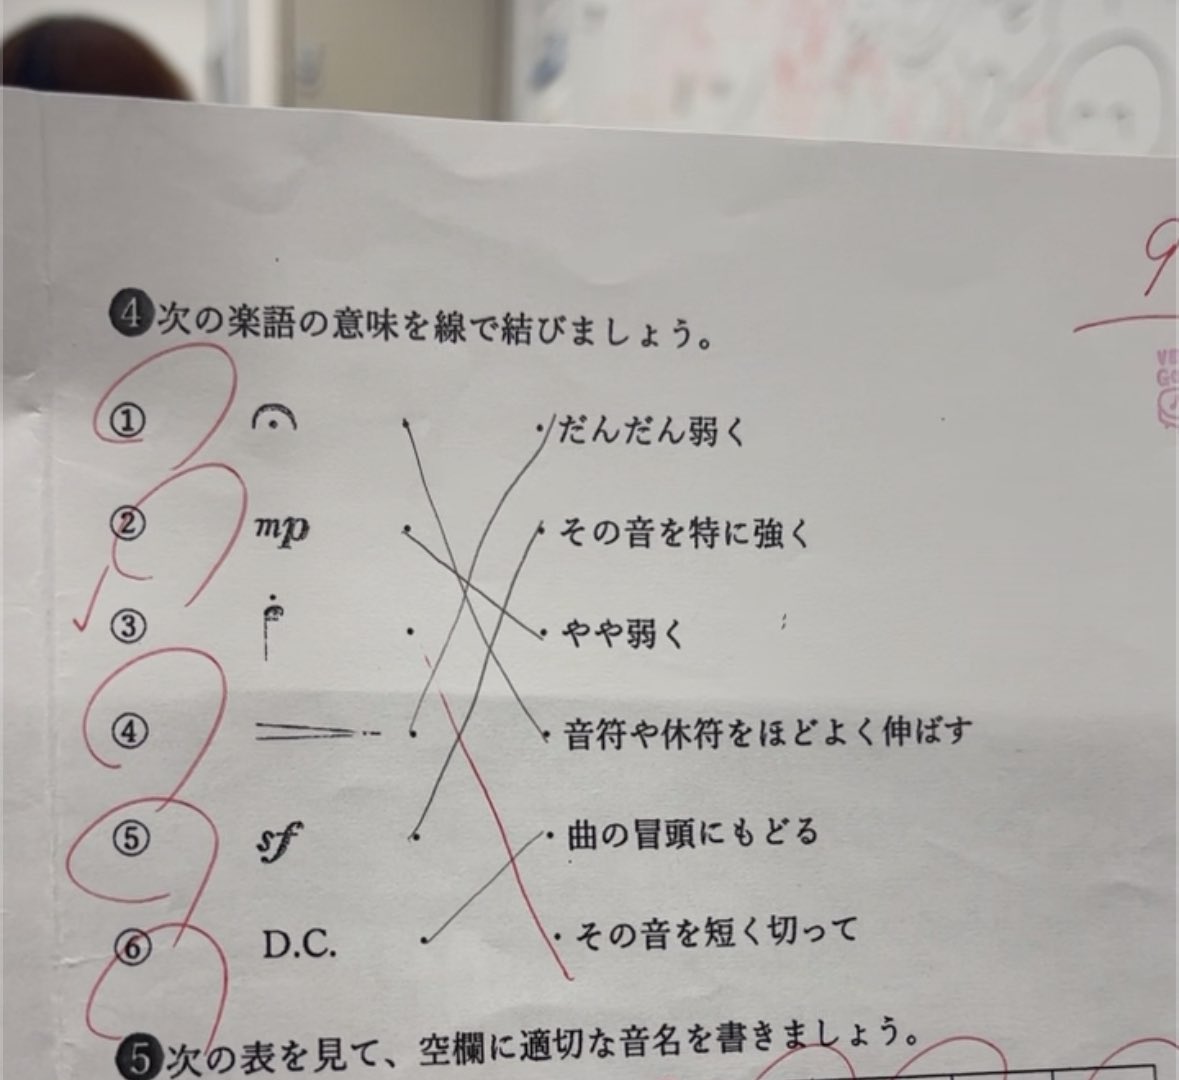 9
❹次の楽語の意味を線で結びましょう。
① ・ ・だんだん弱く
② mp ・ ・その音を特に強く
③ ・ ・やや弱く
④ ・ ・音符や休符をほどよく伸ばす
⑤ sf ・ ・曲の冒頭にもどる
⑥ D.C. ・ ・その音を短く切って
❺次の表を見て、空欄に適切な音名を書きましょう。